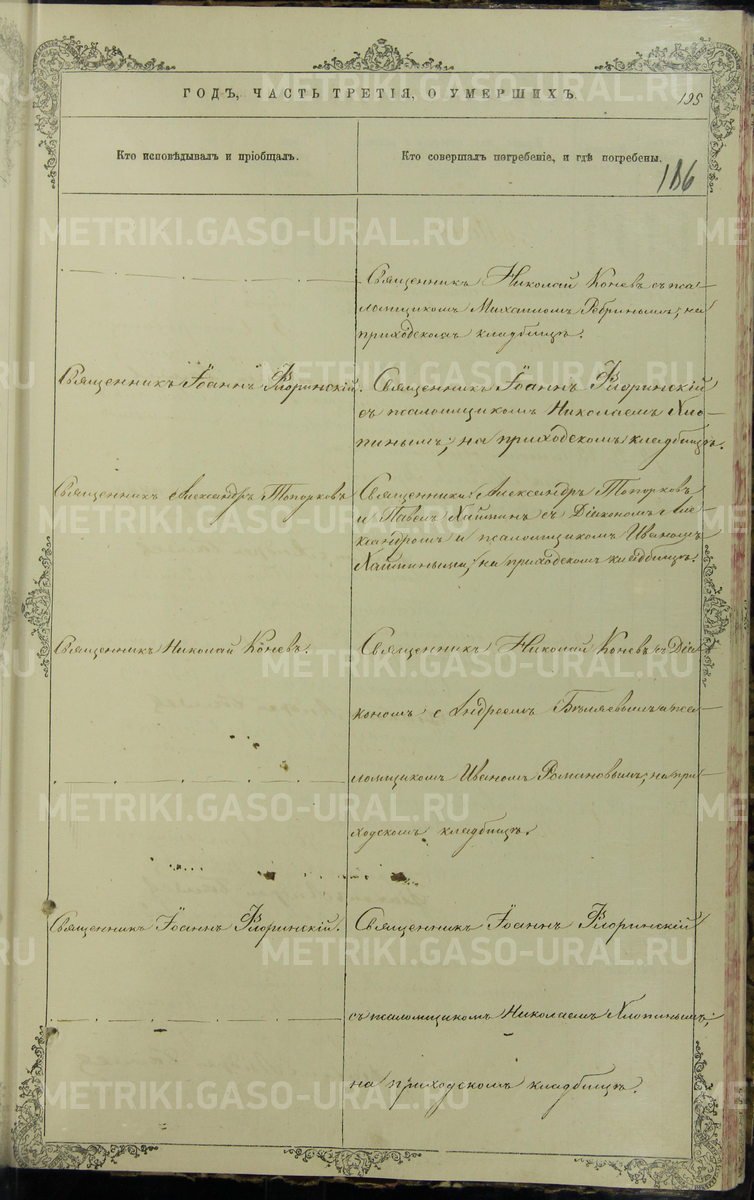 ГОДЪ, ЧАСТЬ ТРЕТІЯ, О УМЕРШИХЪ.
195
Кто исповѣдывалъ и пріобщалъ.
Кто совершалъ погребеніе, и гдѣ погребены.
186
Священникъ Николай Коневъ съ пса-
ломщикомъ Михаиломъ на
приходскомъ кладбищѣ.
Священникъ Іоаннъ Флоринскій.
Священникъ Іоаннъ Флоринскій
съ псаломщикомъ Николаемъ Хло-
пинымъ; на приходскомъ кладбищѣ.
Священникъ Александръ Топорковъ
Священники: Александръ Топорковъ
и Павелъ Хайминъ съ Діакономъ Алек-
сандромъ и псаломщикомъ Иваномъ
Хаймиными; на приходскомъ кладбищѣ.
Священникъ Николай Коневъ.
Священникъ Николай Коневъ съ Діа-
кономъ Андреемъ Бѣляевымъ и пса-
ломщикомъ Иваномъ Романовымъ; на при-
ходскомъ кладбищѣ.
Священникъ Іоаннъ Флоринскій.
Священникъ Іоаннъ Флоринскій
съ псаломщикомъ Николаемъ Хлопинымъ;
на приходскомъ кладбищѣ.
METRIKI.GASO-URAL.RU